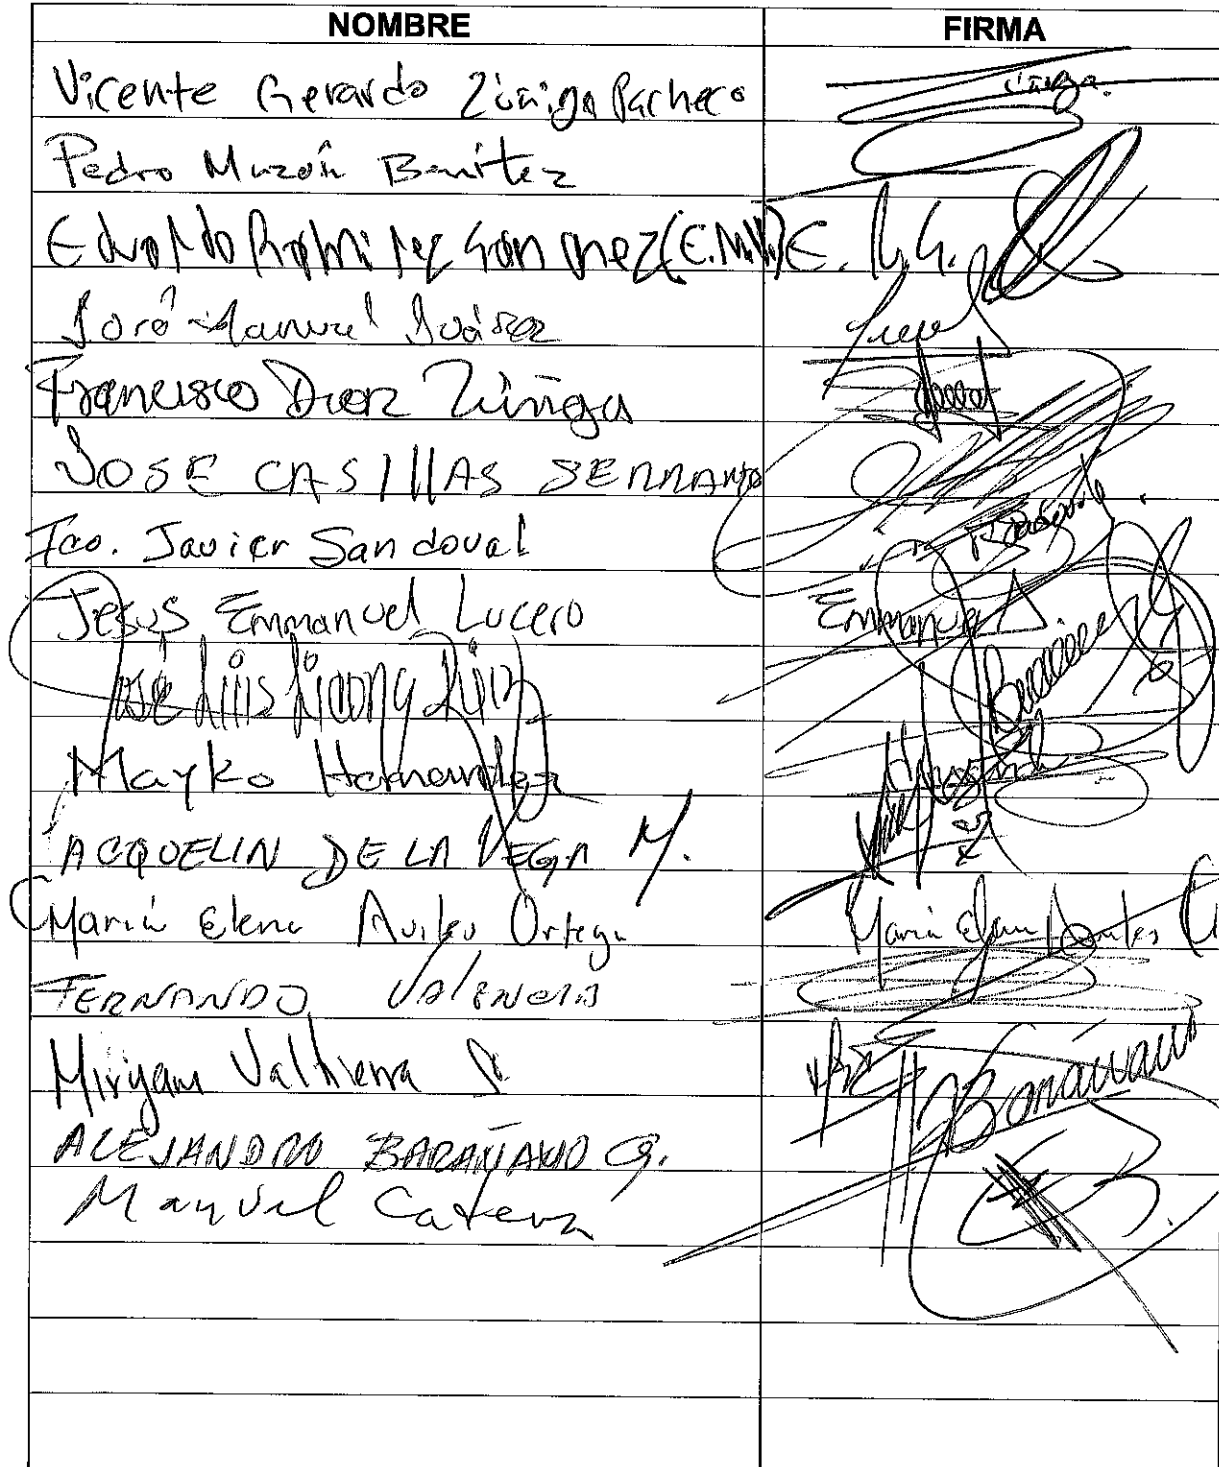 NOMBRE FIRMA
Vicente Gerardo Zúñiga Pacheco
Pedro Muzoń Benítez
Eduardo Ramirez Sanchez (E.M.V.) E. R. G.
José Manuel Suárez
Francisco Diaz Zúñiga
JOSE CASIllAS SERRANO
Fco. Javier Sandoval
Jesus Emmanuel Lucero Emmanuel
José Luis Licong Ruiz
Mayko Hernandez
ACQUELIN DE LA VEGA M.
María Elena Aviles Ortega Maria Elena
FERNANDO VALENCIA
Miriyam Valtierra S.
ALEJANDRO BARAÑANO G.
Manuel